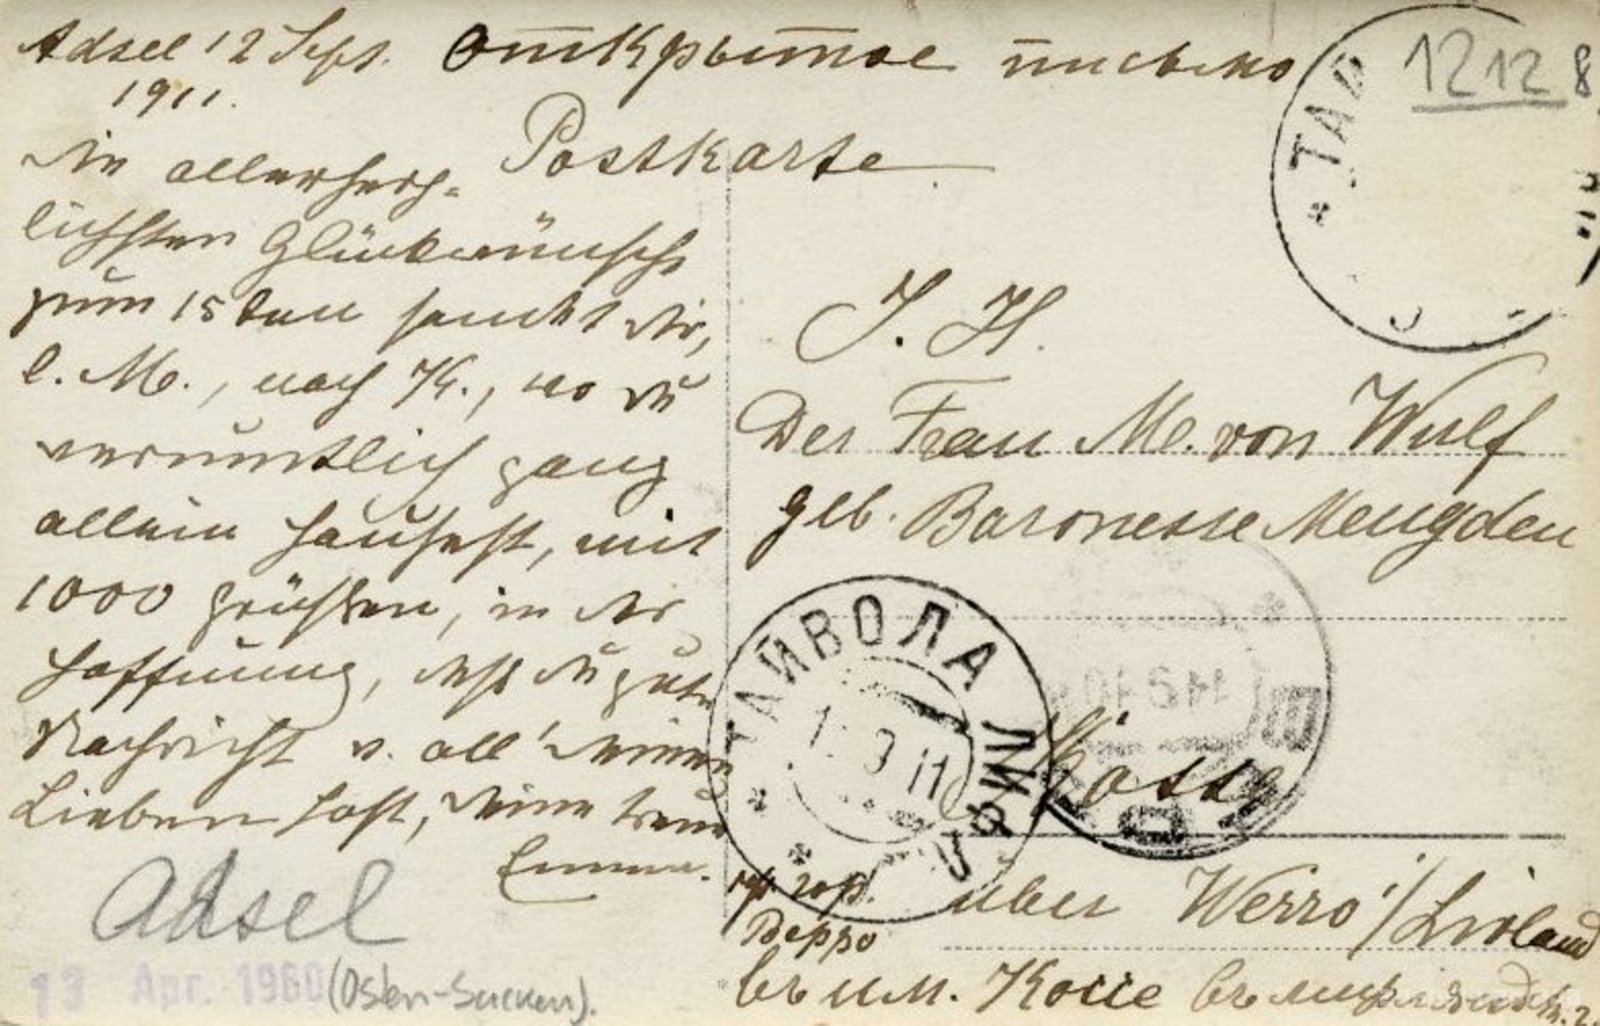 Adsel 12 Sept. Открытое письмо
1911.
Postkarte
Die allerherz-
lichsten Glückwünsche
zum 15ten sendet dir,
l. M., nach K., wo du
vermutlich ganz
allein hausest, mit
1000 Grüssen, in der
Hoffnung, dass du gute
Nachricht v. all' deinen
Lieben hast, deine treue
Emma.
Adsel
13 Apr. 1960
(Osten-Sacken).
1212 8
ТАЙ
I. H.
Der Frau M. von Wulf
geb. Baronesse Mengden
ТАЙВОЛА ЛИФЛ
9 11
14 9 10
Kosse
über Werro / Livland
гор.
Верро
въ им. Коссе въ